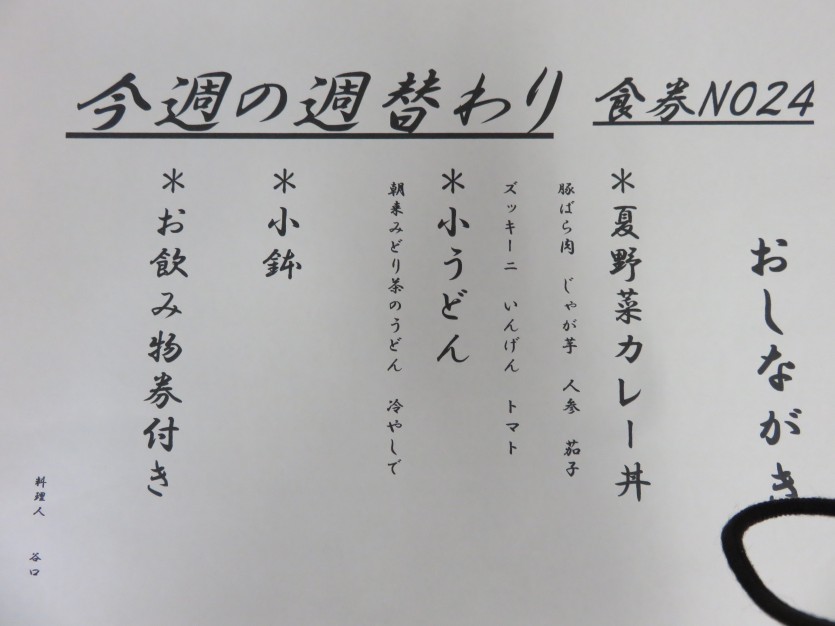 今週の週替わり
食券NO24
おしながき
＊夏野菜カレー丼
豚ばら肉　じゃが芋　人参　茄子
ズッキーニ　いんげん　トマト
＊小うどん
朝来みどり茶のうどん　冷やしで
＊小鉢
＊お飲み物券付き
料理人　谷口